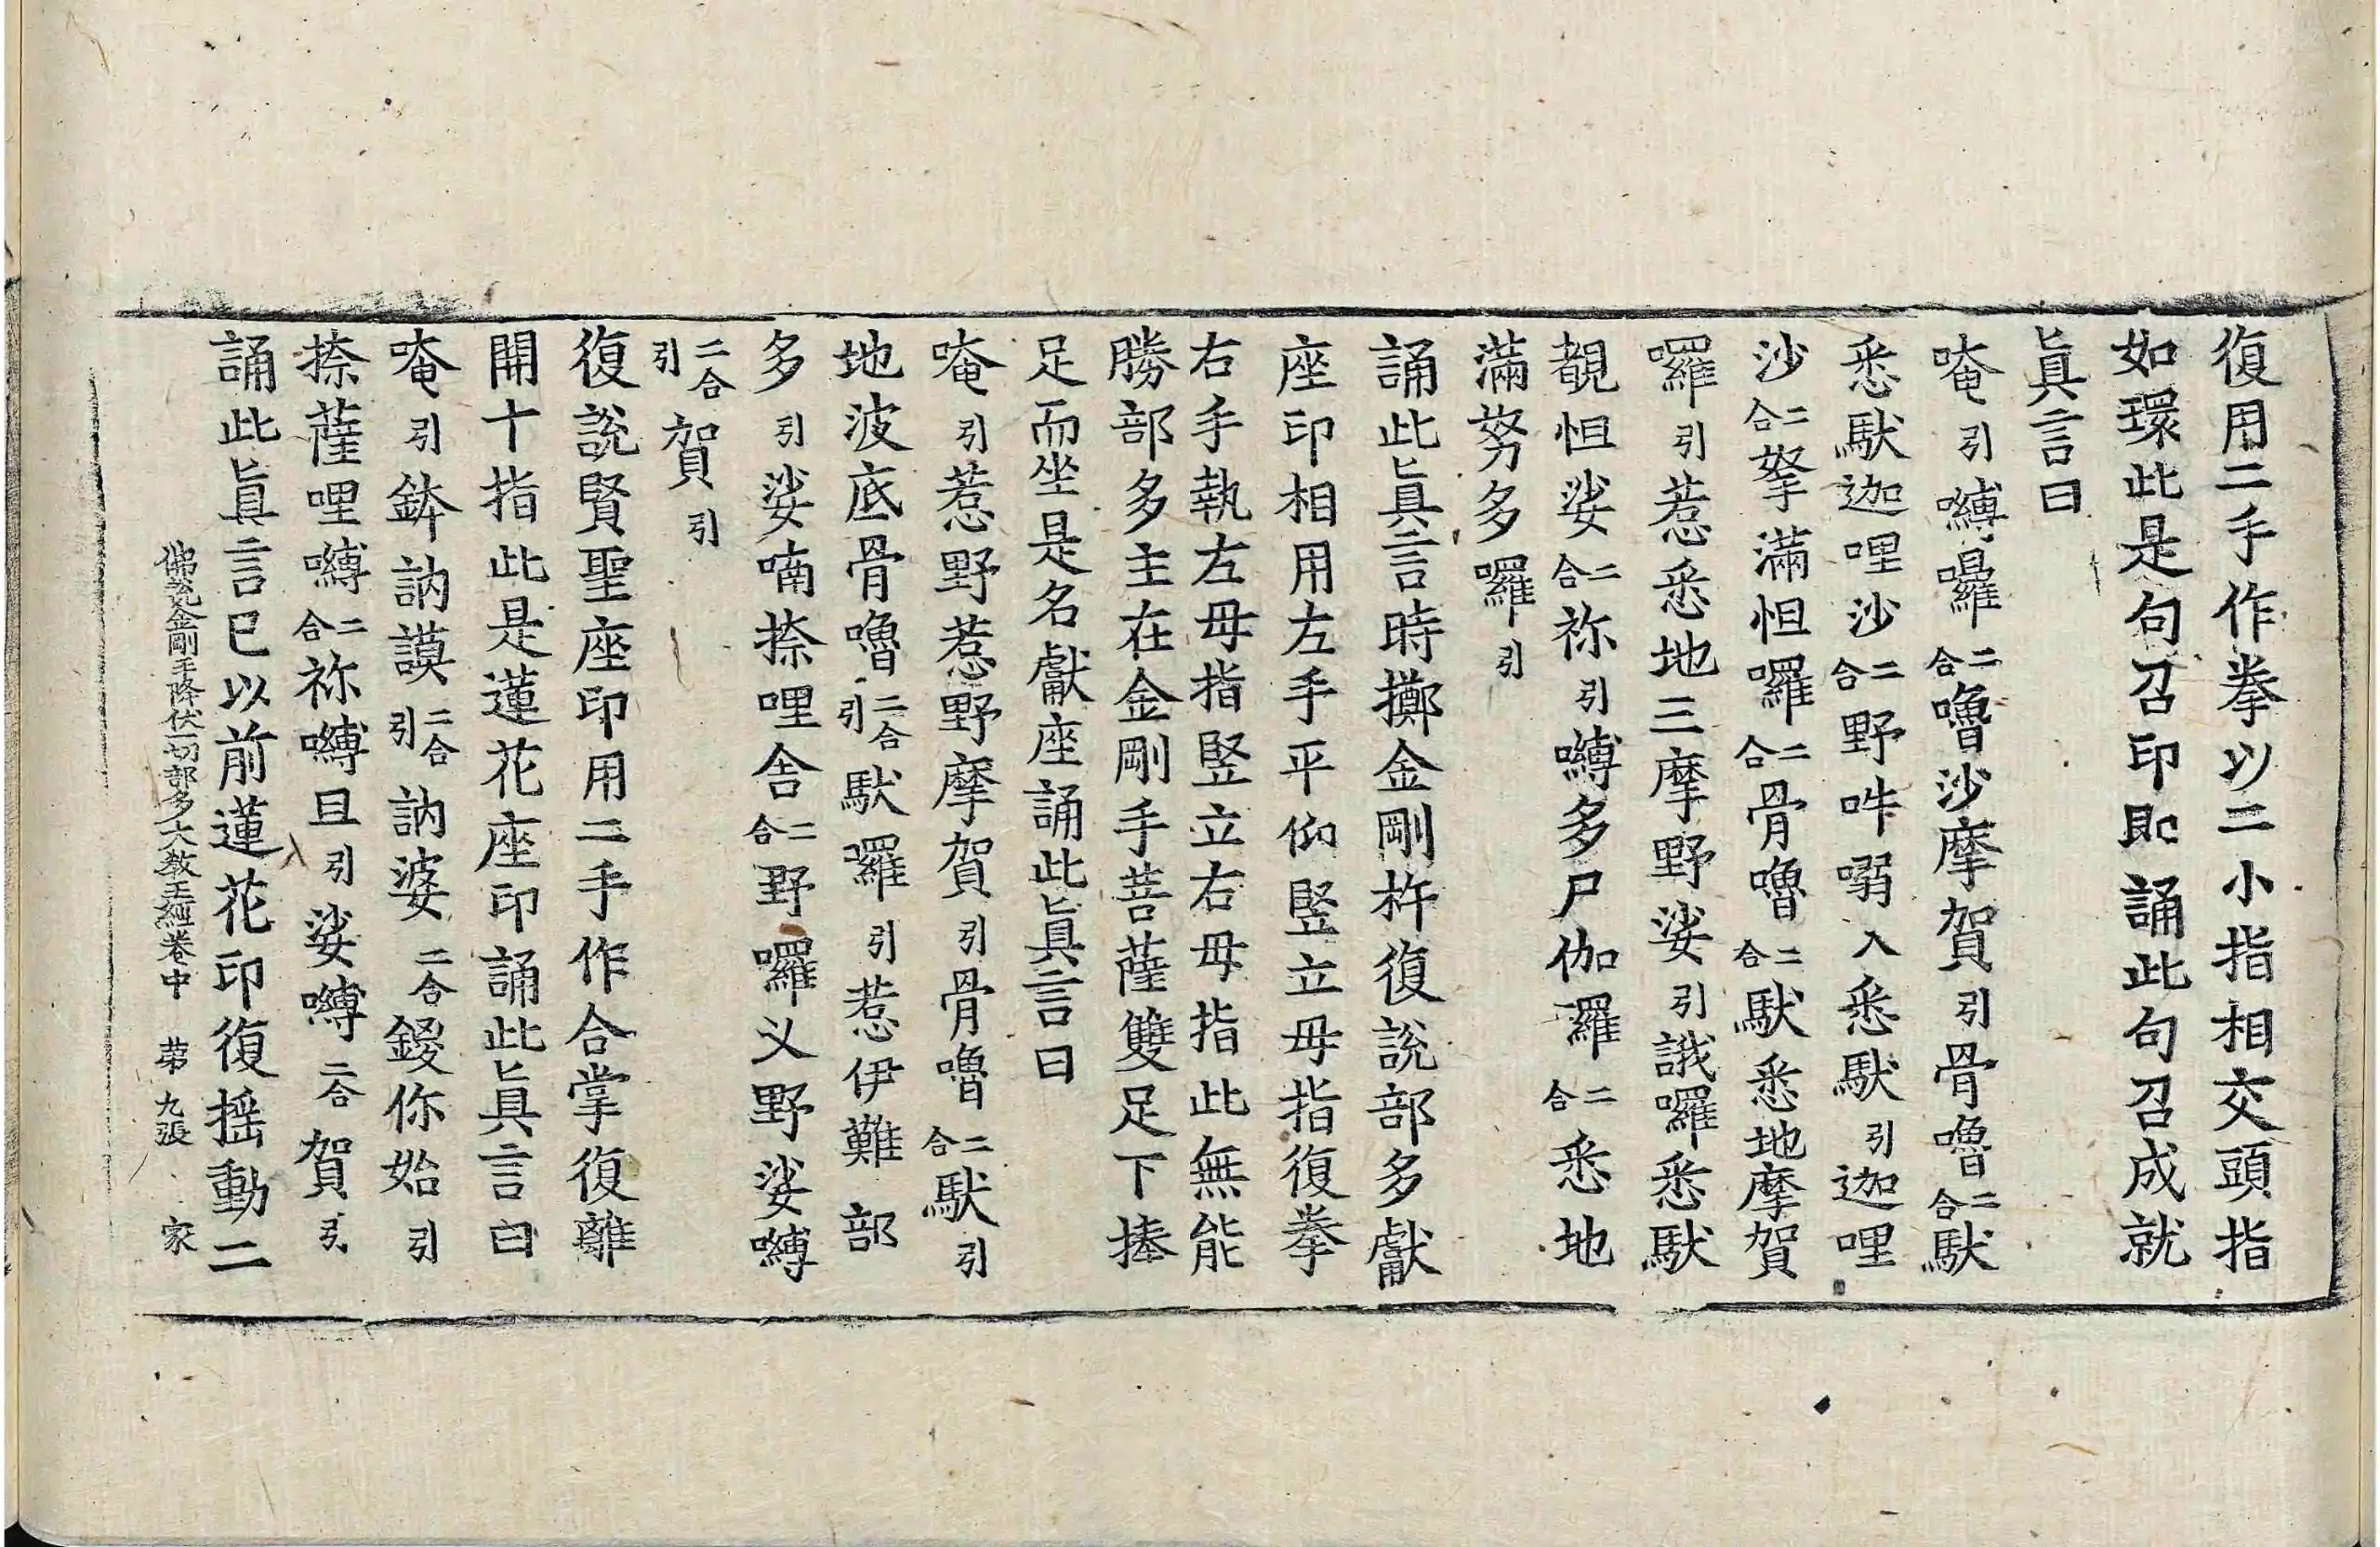 復用二手作拳以二小指相交頭指
如環此是句召印即誦此句召成就
眞言曰
唵引嚩囉二合嚕沙摩賀引骨嚕二合馱
悉馱迦哩沙二合野吽嚩入悉馱引迦哩
沙二合拏滿怛囉二合骨嚕二合馱悉地摩賀
囉引惹悉地三摩野娑引誐囉悉馱
覩怛娑二合祢引嚩多尸伽羅二合悉地
滿努多囉引
誦此眞言時擲金剛杵復說部多獻
座印相用左手平仰竪立母指復拳
右手執左母指竪立右母指此無能
勝部多主在金剛手菩薩雙足下捧
足而坐是名獻座誦此眞言曰
唵引惹野惹野摩賀引骨嚕二合馱引
地波底骨嚕二合引馱羅引惹伊難部
多引娑喃捺哩舍二合野囉义野娑嚩
二合引賀引
復說賢聖座印用二手作合掌復離
開十指此是蓮花座印誦此眞言曰
唵引鉢訥謨二合引訥婆二合鍐你始引
捺薩哩嚩二合祢嚩且引娑嚩二合賀引
誦此眞言已以前蓮花印復揺動二
佛說金剛手降伏一切部多大敎王經卷中 苐九張 家